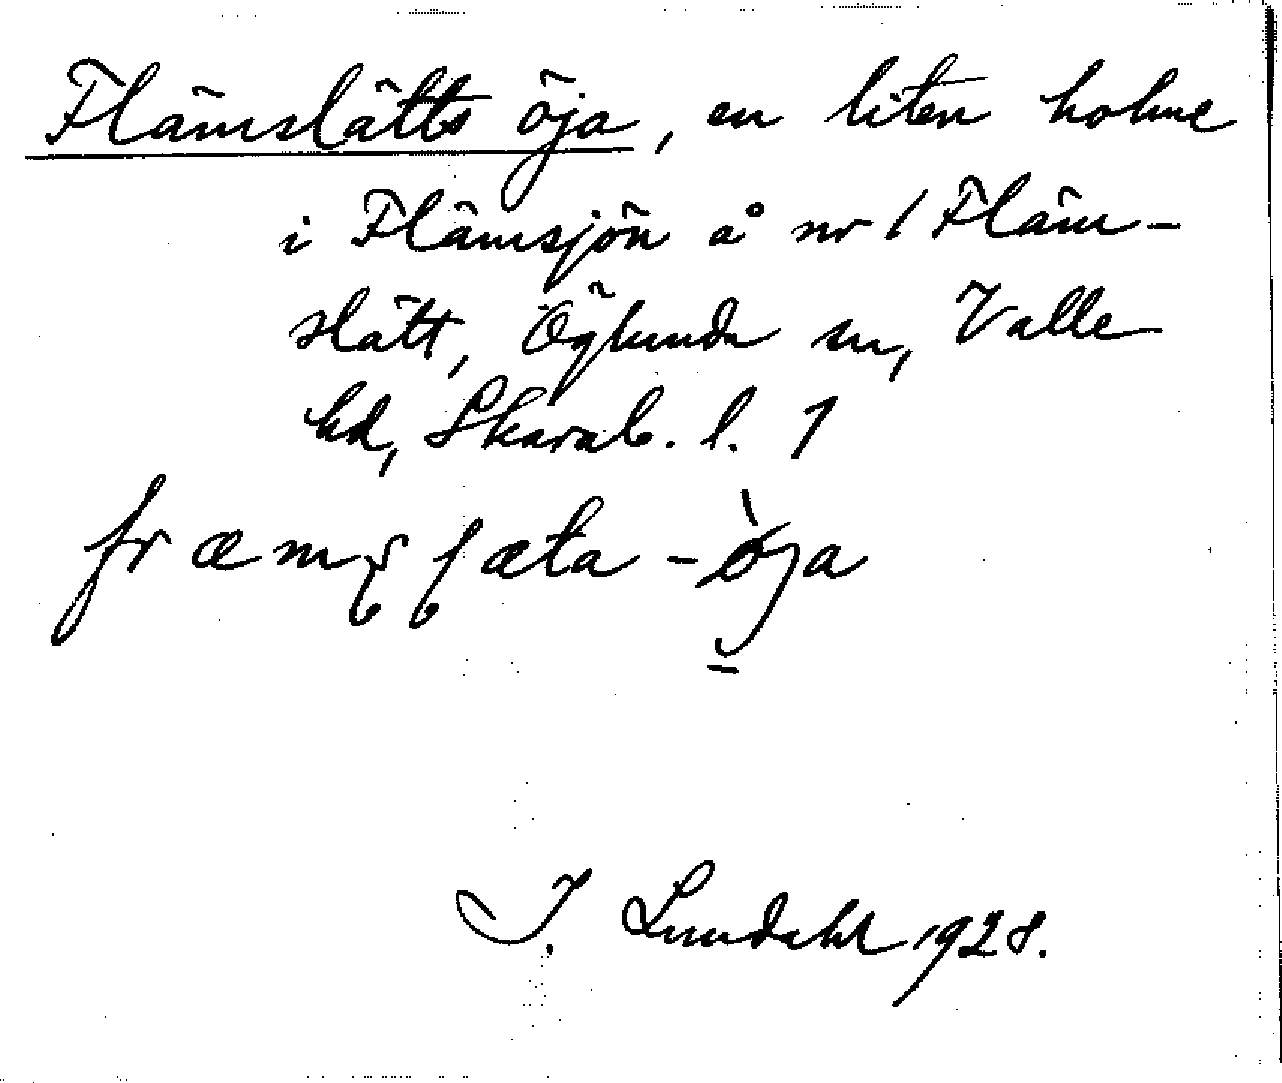 Flämslätts öja, en liten holme
i Flämsjön å nr 1 Fläm-
slätt, Öglunda sn, Valle
hd, Skarab. l. 1
-öja
I. Lundahl 1928.